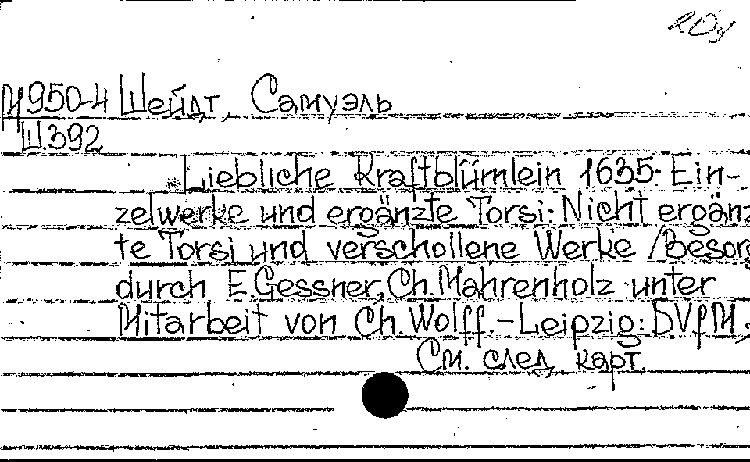 М950-4 Шейдт, Самуэль
Ш392
Liebliche Kraftblümlein 1635. Ein-
zelwerke und ergänzte Torsi. Nicht ergänz
te Torsi und verschollene Werke / Besorg
durch E.Gessner, Ch.Mahrenholz unter
Mitarbeit von Ch.Wolff.-Leipzig: DVfM.
См. след. карт.